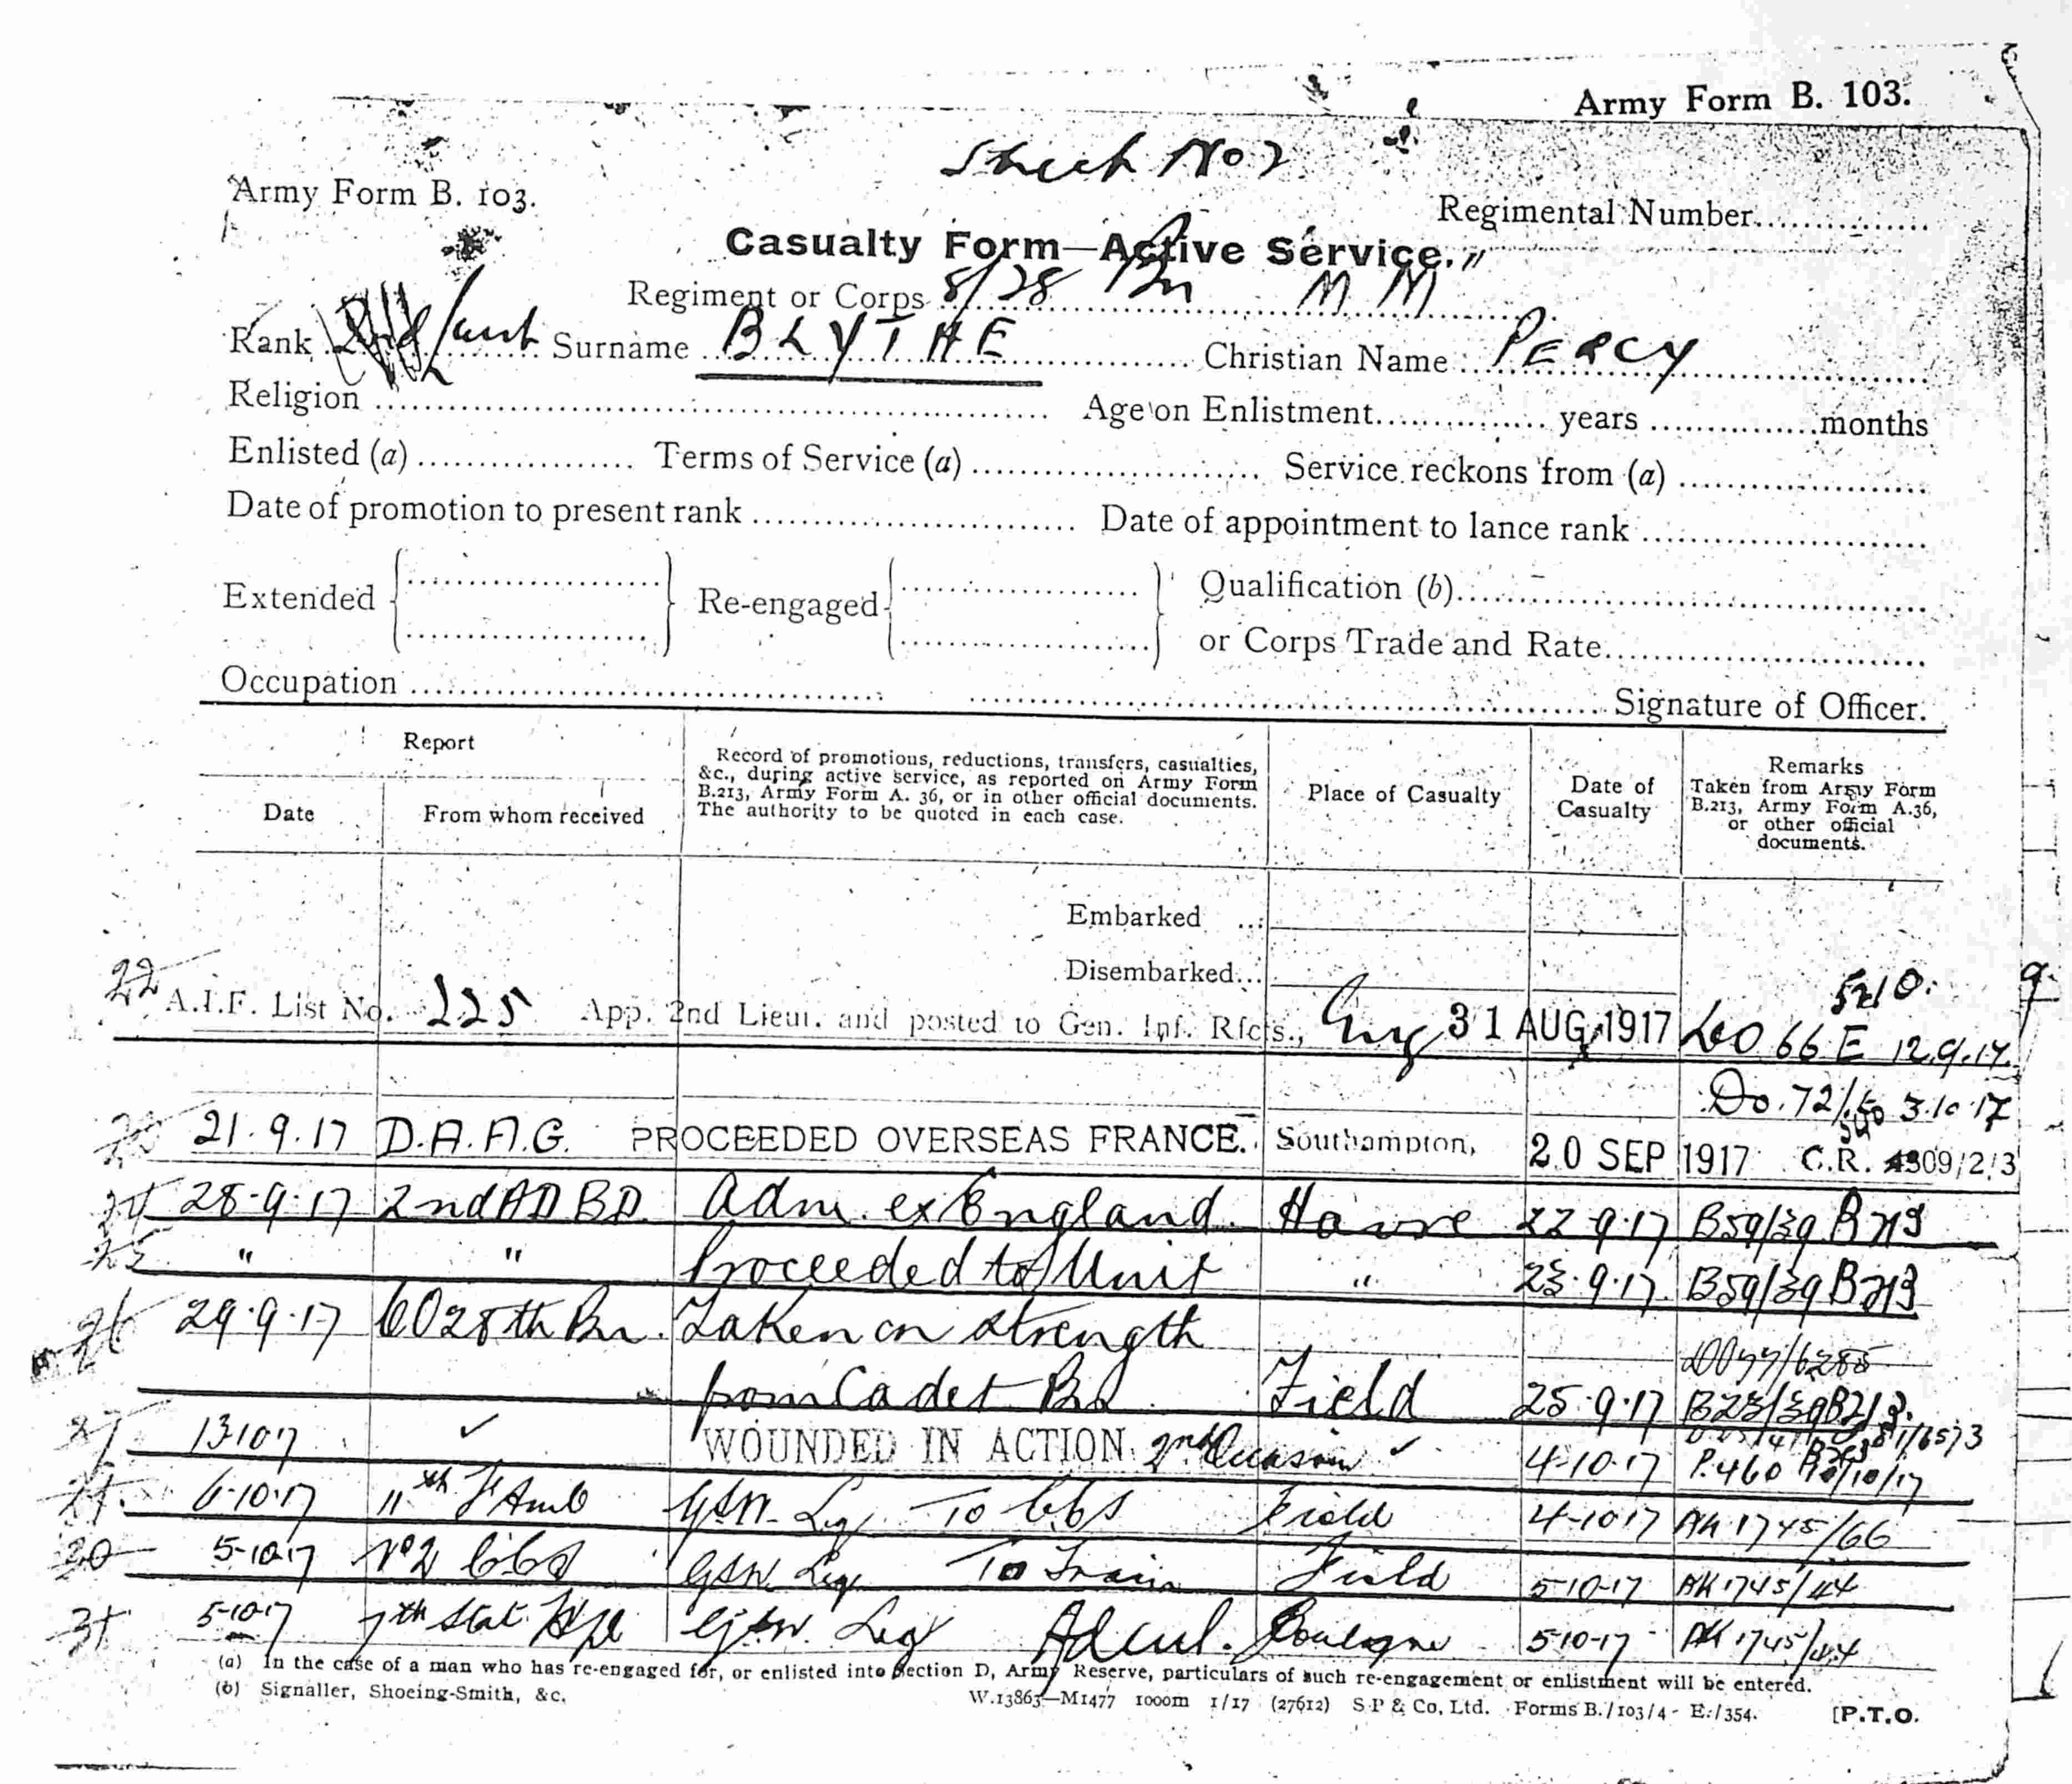 Army Form B. 103.
Sheet No 2
Army Form B. 103.
Regimental Number................
Casualty Form—Active Service.
Regiment or Corps 8/28 Bn M M
Rank Lieut Surname BLYTHE Christian Name PERCY
Religion ........ Age on Enlistment........ years ........ months
Enlisted (a) ........ Terms of Service (a) ........ Service reckons from (a) ........
Date of promotion to present rank ........ Date of appointment to lance rank ........
Extended Re-engaged Qualification (b)........
or Corps Trade and Rate........
Occupation ........ Signature of Officer.
Report
Date
From whom received
Record of promotions, reductions, transfers, casualties,
&c., during active service, as reported on Army Form
B.213, Army Form A. 36, or in other official documents.
The authority to be quoted in each case.
Place of Casualty
Date of
Casualty
Remarks
Taken from Army Form
B.213, Army Form A.36,
or other official
documents.
Embarked ...
Disembarked...
22 A.I.F. List No. 225 App. 2nd Lieut. and posted to Gen. Inf. Rfcts., Eng 31 AUG 1917 DO 66 E 12.9.17.
Do. 72/ 3.10.17
21.9.17 D.A.A.G. PROCEEDED OVERSEAS FRANCE. Southampton, 20 SEP 1917 C.R. 4309/2/3
24 28.9.17 2nd ADBD. Adm. ex England. Havre 22.9.17 B59/39 B213
25 " " Proceeded to Unit " 23.9.17. B59/39 B213
26 29.9.17 CO 28th Bn. Taken on strength
DO77/6285
from Cadet Bn Field 25.9.17 B23/39 B213.
27 13.10.17 ✓ WOUNDED IN ACTION 2nd Occasion ✓ 4.10.17 P.460
6.10.17 11th F Amb GSW. Leg To CCS Field 4.10.17 AK 1745/66
30 5.10.17 No 2 CCS GSW Leg To Train Field 5-10-17 AK 1745/44
31 5.10.17 7th Stat. Hpl GSW. Leg Adm. Boulogne 5-10-17 AK 1745/44
(a) In the case of a man who has re-engaged for, or enlisted into Section D, Army Reserve, particulars of such re-engagement or enlistment will be entered.
(b) Signaller, Shoeing-Smith, &c. W.13863—M1477 1000m 1/17 (27612) S P & Co, Ltd. Forms B./103/4 - E./354. [P.T.O.